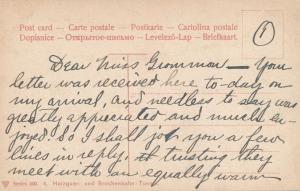 Post card – Carte postale – Postkarte – Cartolina postale
Dopisnice – Открытое письмо – Levelező-Lap – Briefkaart.
①
Dear Miss Grommon – Your
letter was received here to-day on
my arrival, and needless to say was
greatly appreciated and much en-
joyed. So I shall jot you a few
lines in reply, trusting they
meet with an equally warm
Series 460. 4. Harzquer- und Brockenbahn